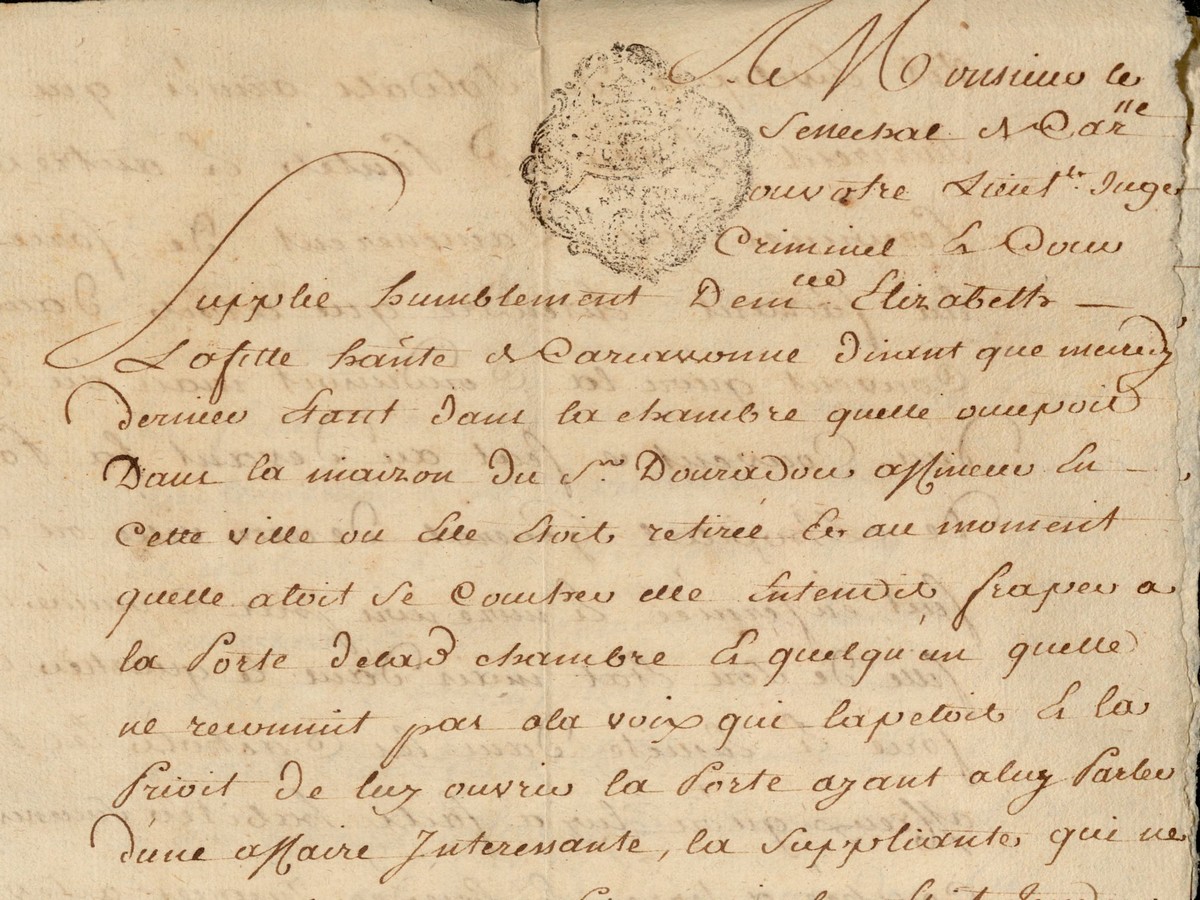 A Monsieur le
Senechal de Car^lle
ou votre Lieut^t. Juge
Criminel En Dout
Supplie humblement Dem^lle Elizabeth
Lafitte hañte de Carcassonne Disant que mercredy
dernier Etant dans la chambre quelle occupoit
Dans la maizon du S^r. Douradou affineur En
Cette ville ou Elle Etoit retirée Et au moment
quelle aloit se Coucher elle Entendit fraper a
la Porte delad chambre Et quelqu'un quelle
ne reconnut pas ala voix qui lapeloit Et la
Prioit de luy ouvrir la Porte ayant aluy Parler
d'une affaire Interessante, la Suppliante qui ne